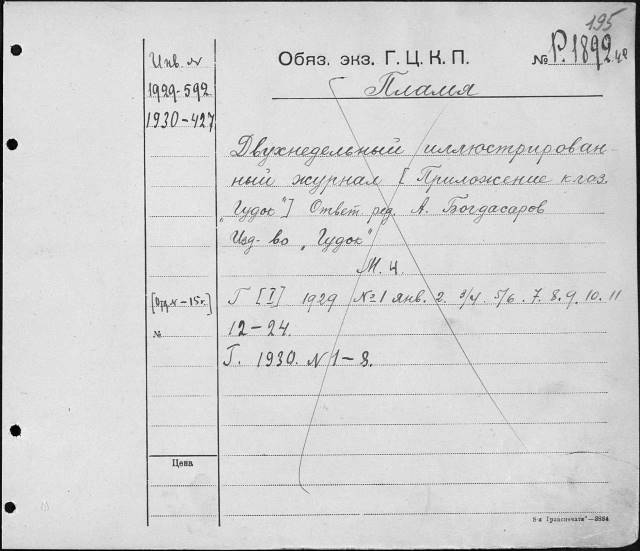 195
Обяз. экз. Г. Ц. К. П.
№ Р.1892
Пламя
Инв. №
1929-592
1930-427
Двухнедельный иллюстрирован-
ный журнал [Приложение к газ.
„Гудок"] Ответ. ред. А. Богдасаров
Изд-во „Гудок"
М. 4.
[Отд. № - 15 к.]
Г [I] 1929 №1 янв. 2. 3/4. 5/6. 7. 8. 9. 10. 11
№
12-24.
Г. 1930. N 1-8.
Цена
8-я „Транспечати"—3884